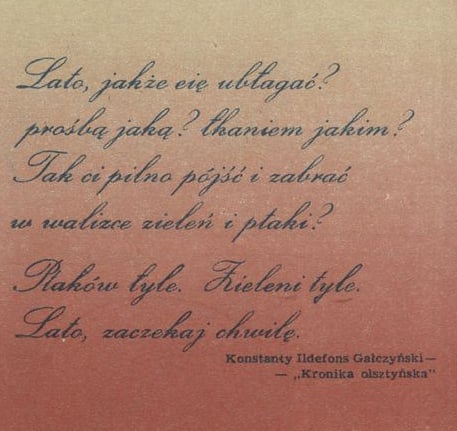 Lato, jakże cię ubłagać?
prośbą jaką? łkaniem jakim?
Tak ci pilno pójść i zabrać
w walizce zieleń i ptaki?
Ptaków tyle. Zieleni tyle.
Lato, zaczekaj chwilę.
Konstanty Ildefons Gałczyński—
— „Kronika olsztyńska"